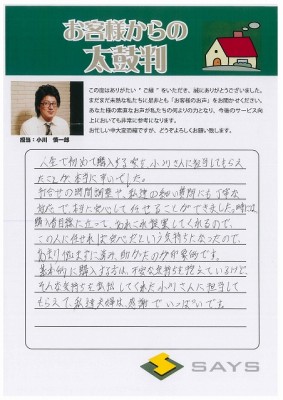 お客様からの
太鼓判
この度はありがたい“ご縁”をいただき、誠にありがとうございました。
まだまだ未熟な私たちに是非とも「お客様のお声」をお聞かせください。
あなた様の素直なお声が私たちの何よりの力となり、今後のサービス向
上においても非常に参考になります。
お忙しい中大変恐縮ですが、どうぞよろしくお願い致します。
担当:小川 慎一郎
人生で初めて購入する家を、小川さんに担当してもらえ
たことが、本当に幸いでした。
打合せの時間調整や、私達の知らない質問にも丁寧な
対応で、本当に安心して任せることができました。時には
購入者目線に立って、
この人に任せれば安心だという気持ちになったので、
あまり悩まずに済み、助かったのが印象的です。
基本的に購入する方は、不安な気持ちを抱えているけど、
そんな気持ちを払拭してくれた小川さんに担当して
もらえて、私達夫婦は感謝でいっぱいです。
SAYS